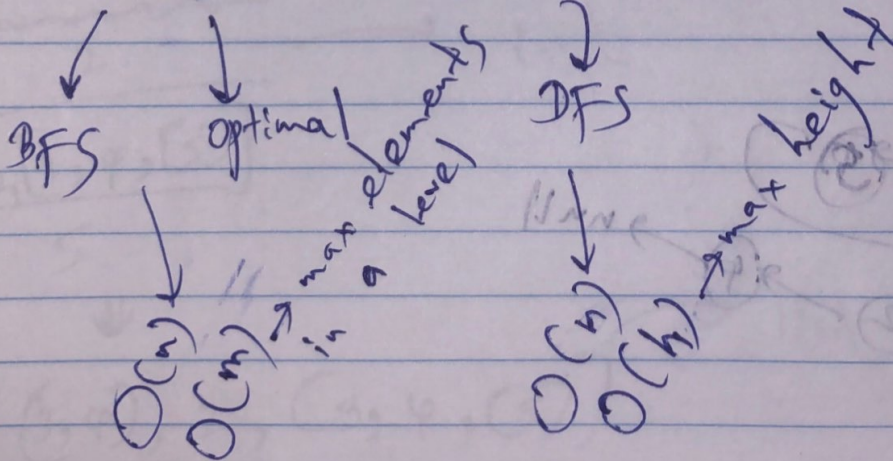 BFS
optimal
O(n)
O(m) → max elements
in a level
DFS
O(n)
O(h) → max height